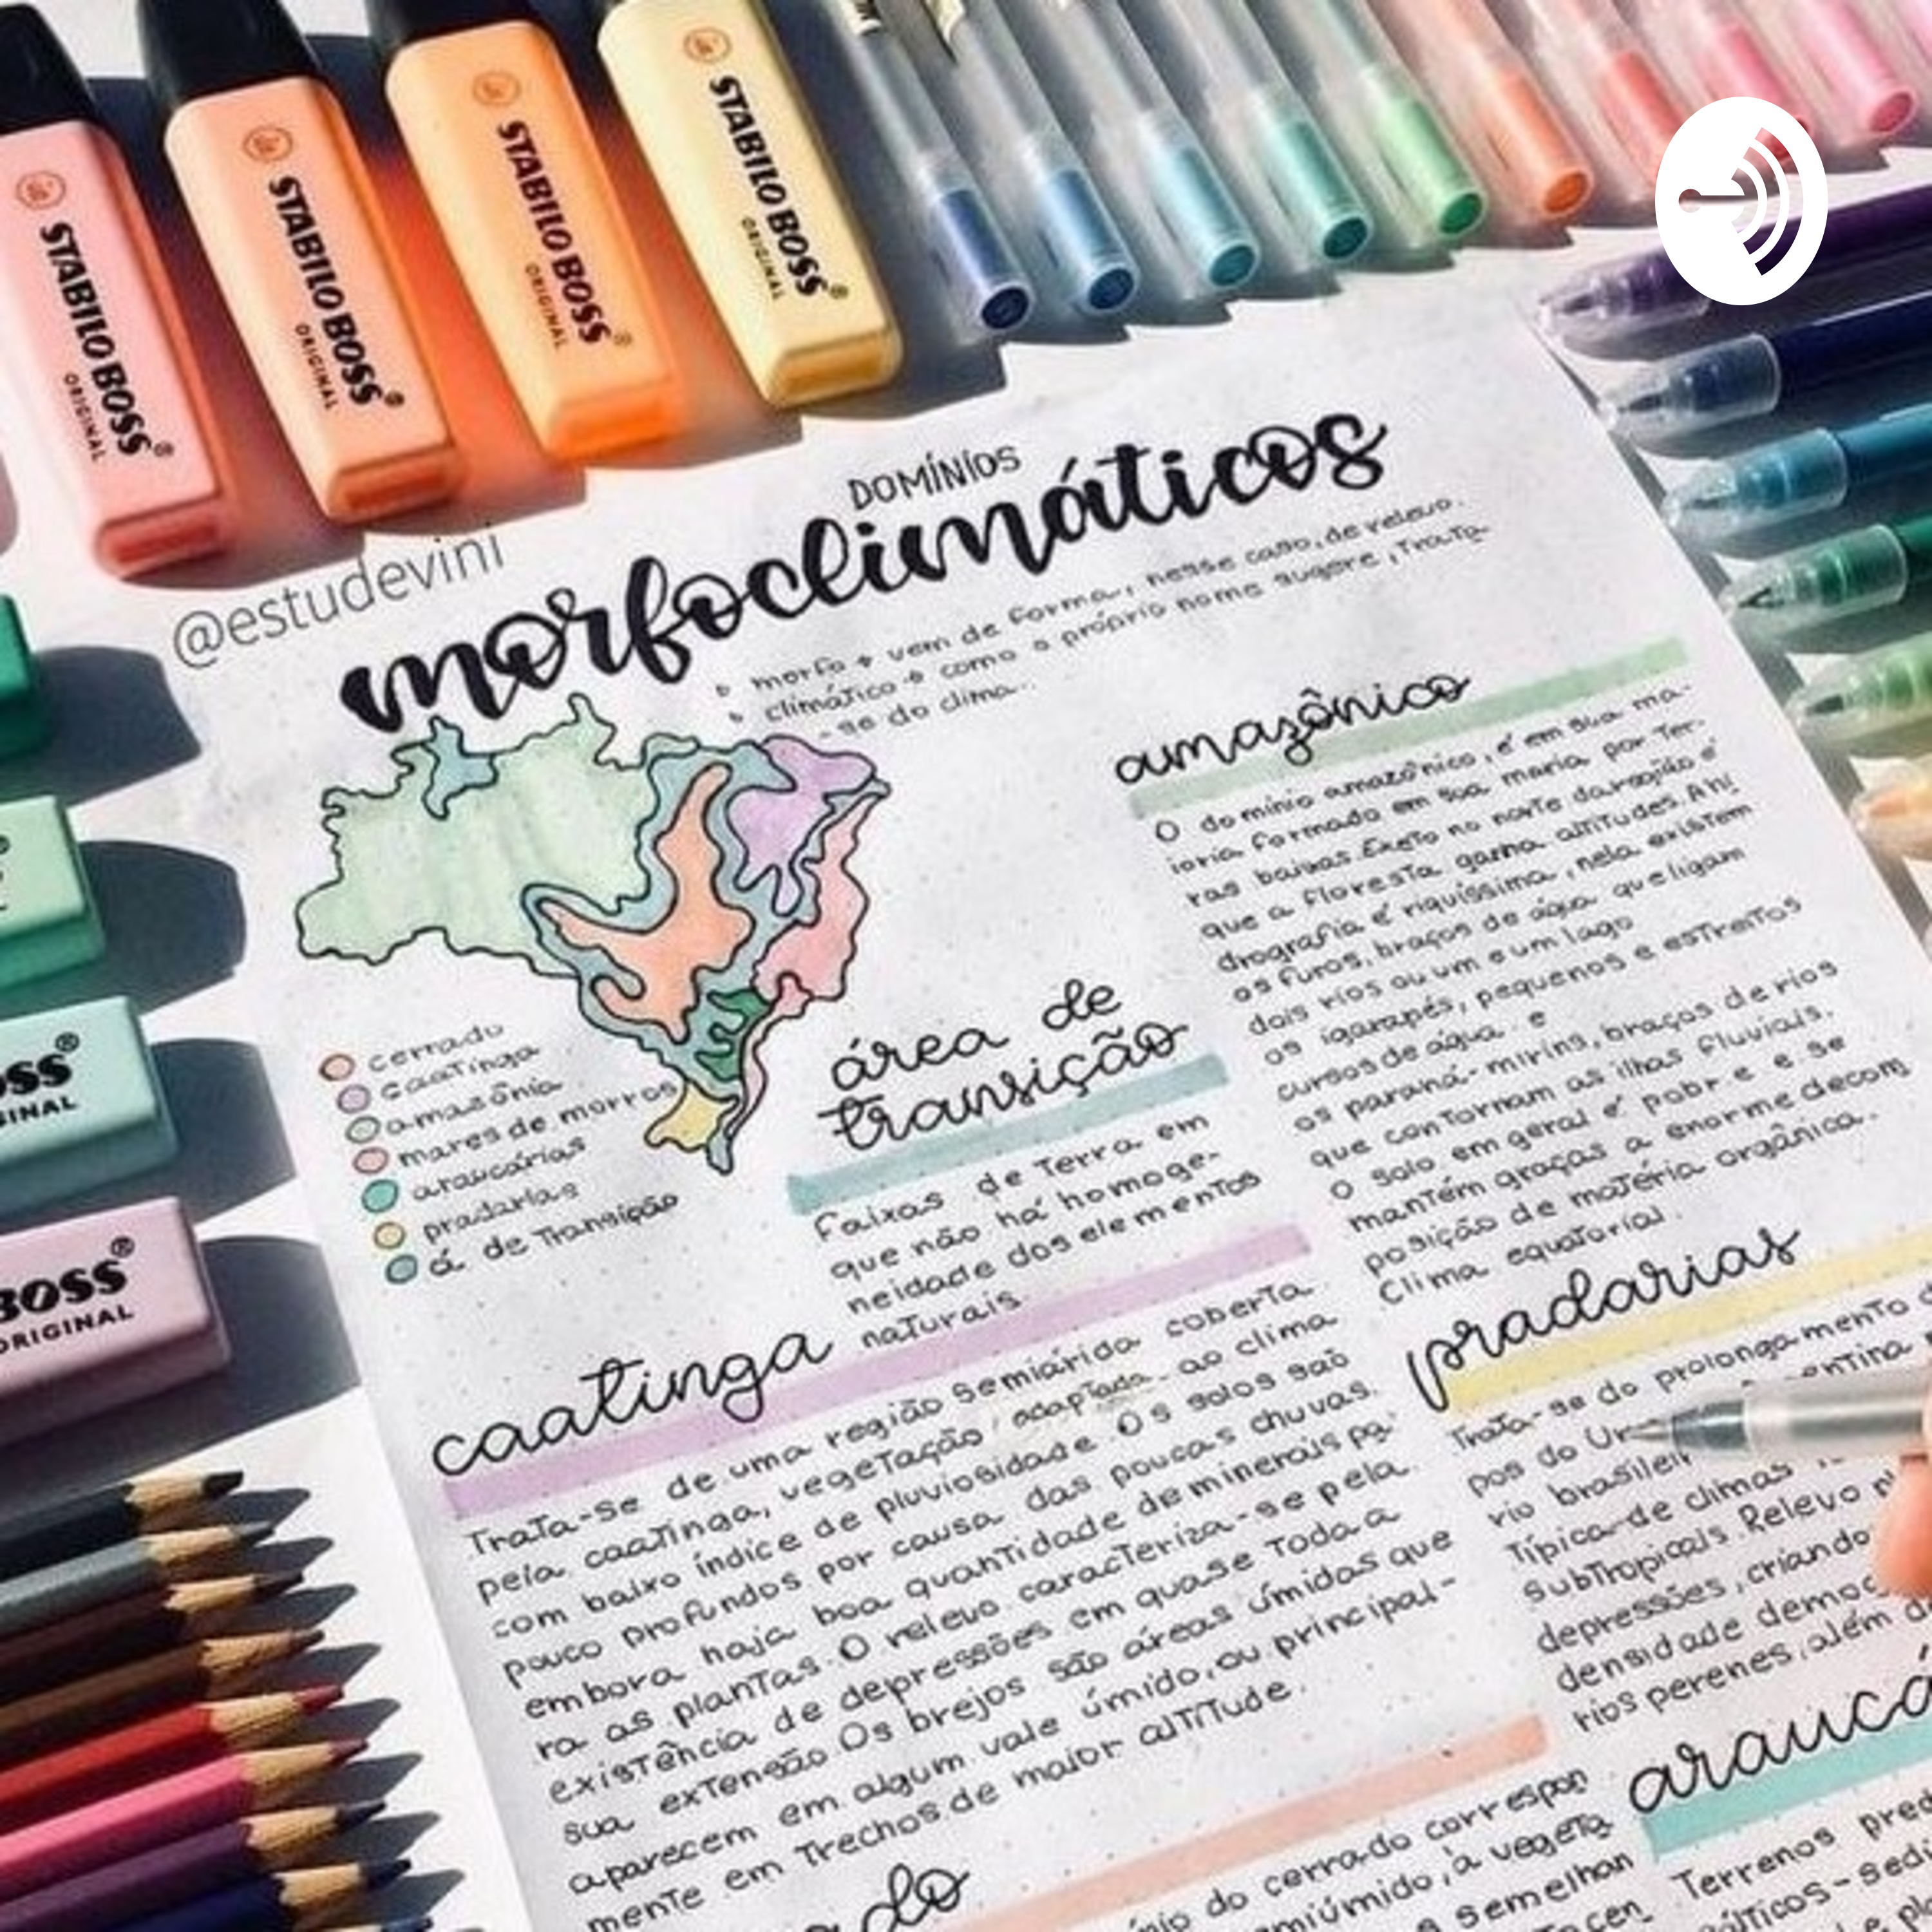 STABILO BOSS®
ORIGINAL
STABILO BOSS®
ORIGINAL
STABILO BOSS®
ORIGINAL
STABILO BOSS®
ORIGINAL
@estudevini
DOMÍNIOS
morfoclimáticos
morfo → vem de forma, nesse caso, de relevo.
climático → como o próprio nome sugere, trata
-se do clima.
cerrado
caatinga
amazônia
mares de morros
araucárias
pradarias
á. de Transição
área de
transição
Faixas de Terra em
que não há homoge-
neidade dos elementos
naturais.
amazônico
O domínio amazônico, é em sua ma-
ioria formado em sua maria por Ter-
ras baixas. Exeto no norte da região é
que a floresta ganha altitudes. A hi
drografia é riquíssima, nela existem
os furos, braços de água que ligam
dois rios ou um e um lago
os igarapés, pequenos e estreitos
cursos de água. e
os paraná-mirins, braços de rios
que contornam as ilhas fluviais.
O solo em geral é pobre e se
mantém graças a enorme decom
posição de matéria orgânica.
Clima equatorial.
caatinga
Trata-se de uma região semiárida coberta
pela caatinga, vegetação adaptada ao clima
com baixo índice de pluviosidade. Os solos saõ
pouco profundos por causa das poucas chuvas.
embora haja boa quantidade de minerais pa-
ra as plantas. O relevo caracteriza-se pela
existência de depressões em quase toda a
sua extensão Os brejos são áreas úmidas que
aparecem em algum vale úmido, ou principal-
mente em Trechos de maior altitude.
pradarias
Trata-se do prolongamento
pos do
rio
Típica de climas
SubTropicais Relevo
depressões, criando
densidade
rios perenes, além
do cerrado correspon
a vegeta
semelhan
Terrenos
OSS®
GINAL
BOSS®
ORIGINAL